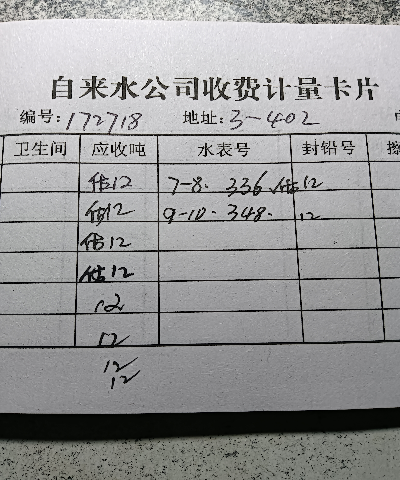 自来水公司收费计量卡片
编号:172718 地址:3-402
卫生间 应收吨 水表号 封铅号
估12 7-8. 336. 估12
估12 9-10. 348. 12
估12
估12
12
12
12
12